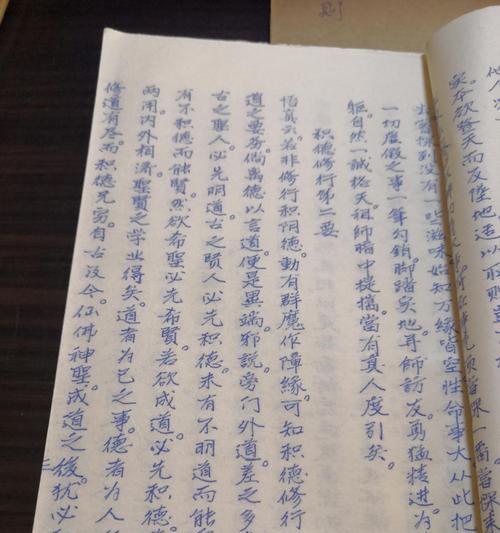 則
実本欲登天而反墜地造以
没有一些滋味始知万緣皆空性命事大从此把
一切虚假之事一筆勾銷。脚踏实地。寻師訪友。勇猛精進为
軀。自然一誠格天。祖師暗中提攜。當有真人度引矣。
积德修行第二要
悟真云。若非修行积阴德。動有群魔作障緣。可知积德修行
道之要务。倘离德以言道。便是異端邪説。旁门外道。差之多
古之聖人。必先明道。古之賢人。必先积德。未有不明道而能
有不积德而能賢。然欲希聖必先希賢。若欲成道。必先积德
両用。内外相済。聖賢之学业得矣。道者为己之事。德者为人
修道有尽。而积德无穷。自古及今。仙佛神聖成道之後。犹必
三